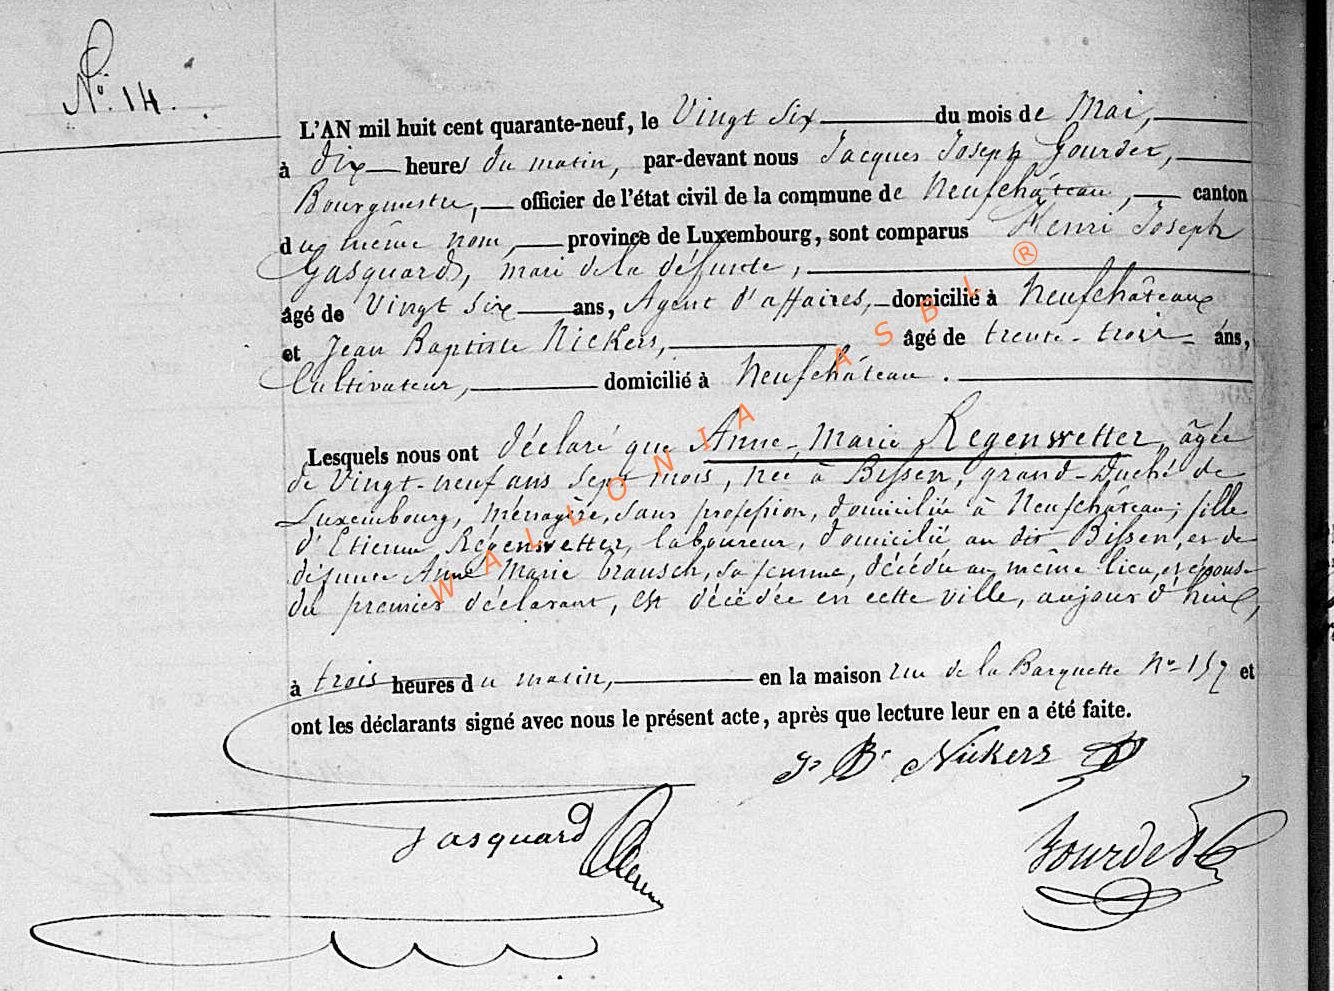 No. 14.
L'AN mil huit cent quarante-neuf, le Vingt Six du mois de Mai,
à dix heures du matin, par-devant nous Jacques Joseph Gourdet,
Bourgmestre, officier de l'état civil de la commune de Neufchâteau, canton
du même nom, province de Luxembourg, sont comparus Henri Joseph
Gasquard, mari de la défunte,
âgé de Vingt Six ans, Agent d'affaires, domicilié à Neufchâteau
et Jean Baptiste Nickers, âgé de trente-trois ans,
Cultivateur, domicilié à Neufchâteau.
Lesquels nous ont déclaré que Anne-Marie Regenwetter, âgée
de Vingt-neuf ans sept mois, née à Bissen, grand-Duché de
Luxembourg, ménagère, sans profession, domiciliée à Neufchâteau, fille
d'Etienne Régenwetter, laboureur, domicilié au dit Bissen, et de
défunte Anne Marie Crausch, sa femme, décédée au même lieu, et épouse
du premier déclarant, est décédée en cette ville, aujourd'hui,
à trois heures du matin, en la maison rue de la Barquette No 157 et
ont les déclarants signé avec nous le présent acte, après que lecture leur en a été faite.
J. Bte Nickers
Gasquard
Gourdet
WALLONIA ASBL ®